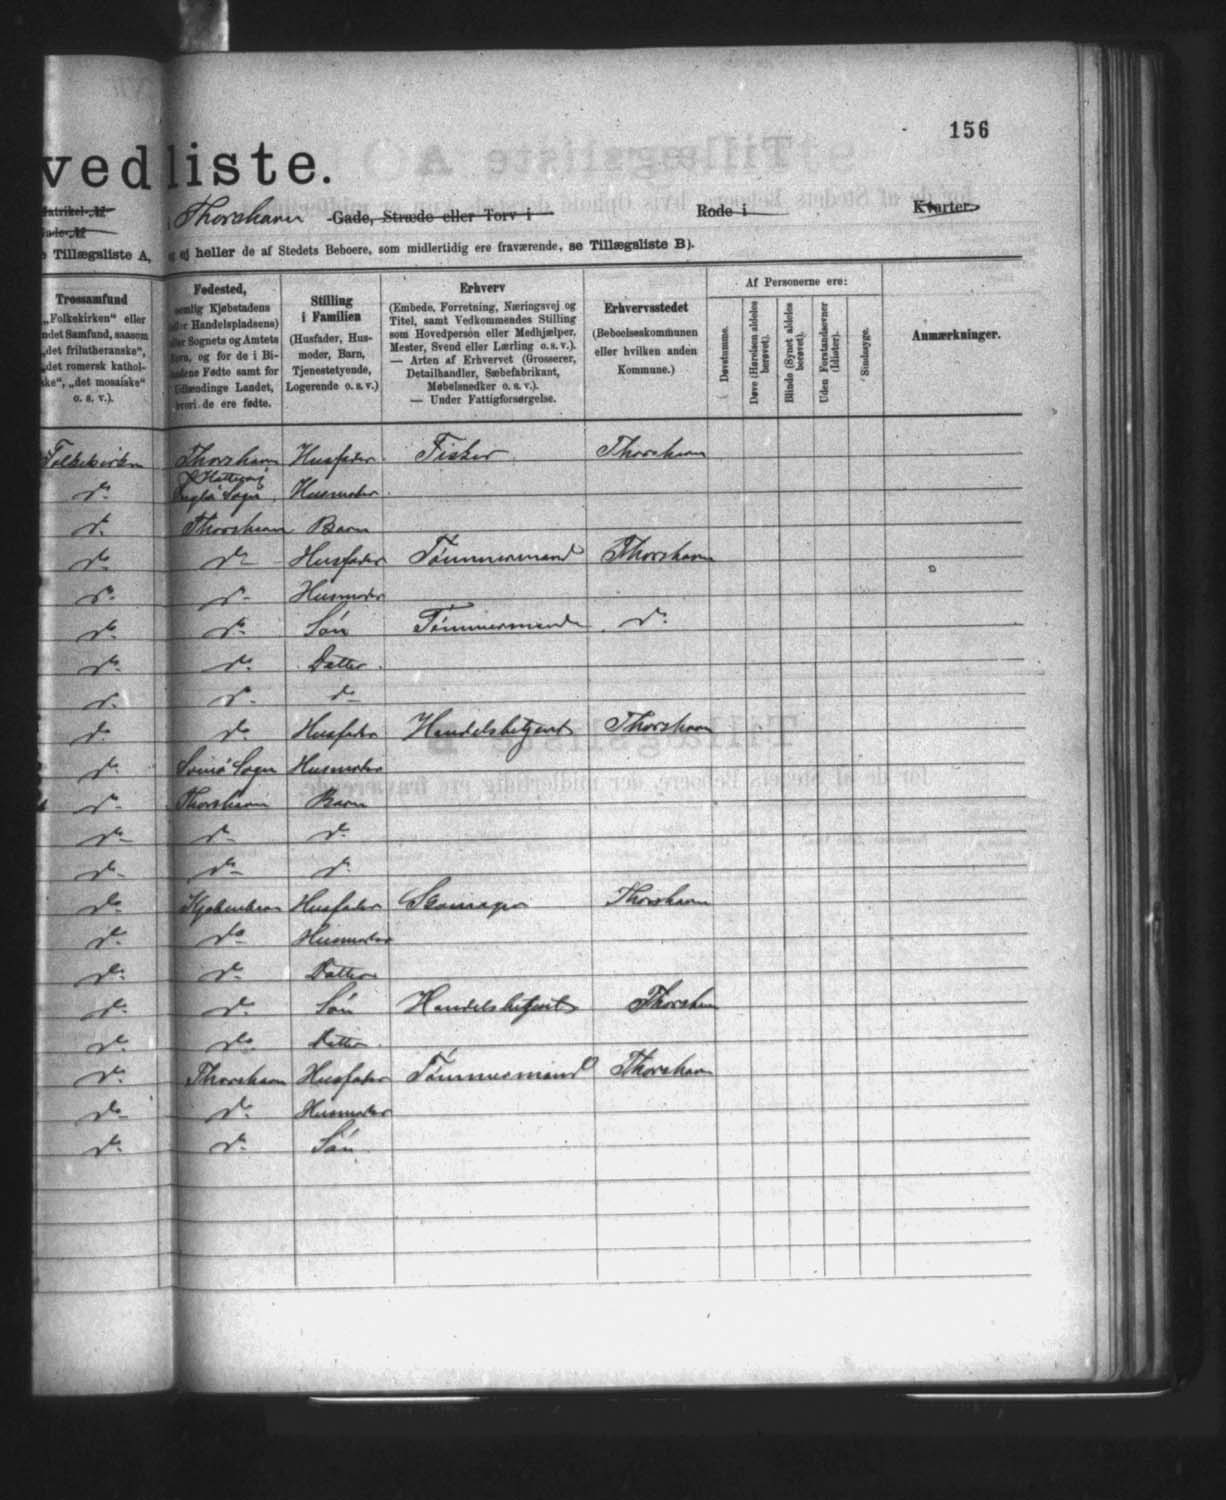 156
vedliste.
Matrikel-№
Thorshavn -Gade, Stræde eller Torv i Rode i Kvarter.
Tillægsliste A, ej heller de af Stedets Beboere, som midlertidig ere fraværende, se Tillægsliste B).
Trossamfund
„Folkekirken“ eller
andet Samfund, saasom
„det frilutheranske“,
„det romersk kathol-
ske“, „det mosaiske“
o. s. v.).
Fødested,
nemlig Kjøbstadens
eller Handelspladsens)
eller Sognets og Amtets
Navn, og for de i Bi-
landene Fødte samt for
Udlændinge Landet,
hvori de ere fødte.
Stilling
i Familien
(Husfader, Hus-
moder, Barn,
Tjenestetyende,
Logerende o. s. v.)
Erhverv
(Embede, Forretning, Næringsvej og
Titel, samt Vedkommendes Stilling
som Hovedperson eller Medhjælper,
Mester, Svend eller Lærling o. s. v.).
— Arten af Erhvervet (Grosserer,
Detailhandler, Sæbefabrikant,
Møbelsnedker o. s. v.).
— Under Fattigforsørgelse.
Erhvervsstedet
(Beboelseskommunen
eller hvilken anden
Kommune.)
Af Personerne ere:
Døvstumme.
Døve (Hørelsen aldeles
berøvet).
Blinde (Synet aldeles
berøvet).
Uden Forstandsevner
(Idioter).
Sindssyge.
Anmærkninger.
Folkekirken Thorshavn Husfader Fisker Thorshavn
do Sogn Husmoder
do Thorshavn Barn
do do Husfader Tømmermand Thorshavn
do do Husmoder
do do Søn Tømmermand do
do do Datter
do do do
do do Husfader Handelsbetjent Thorshavn
do Sogn Husmoder
do Thorshavn Barn
do do do
do do do
do Kjøbenhavn Husfader Thorshavn
do do Husmoder
do do Datter
do do Søn Handelsbetjent Thorshavn
do do Datter
do Thorshavn Husfader Tømmermand Thorshavn
do do Husmoder
do do Søn